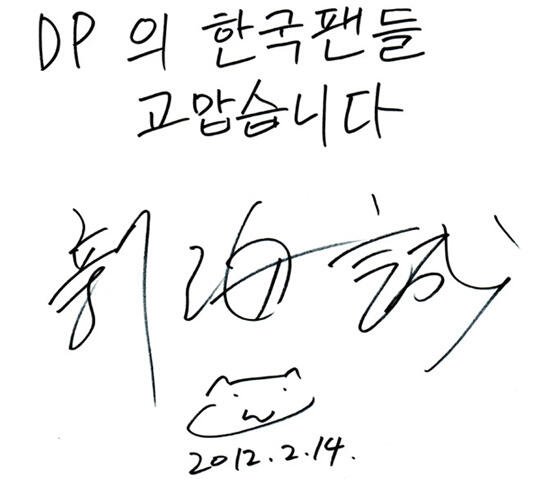 DP 의 한국팬들
고맙습니다
新海誠
2012.2.14.